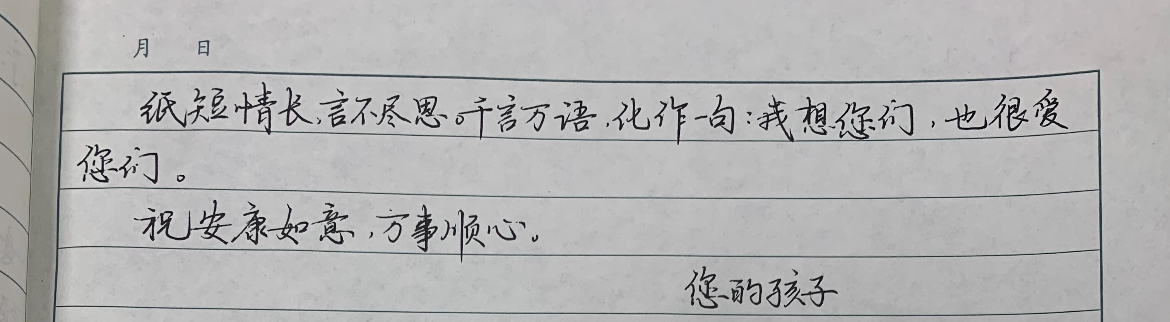 月 日
纸短情长,言不尽思。千言万语,化作一句:我想您们,也很爱
您们。
祝安康如意,万事顺心。
您的孩子